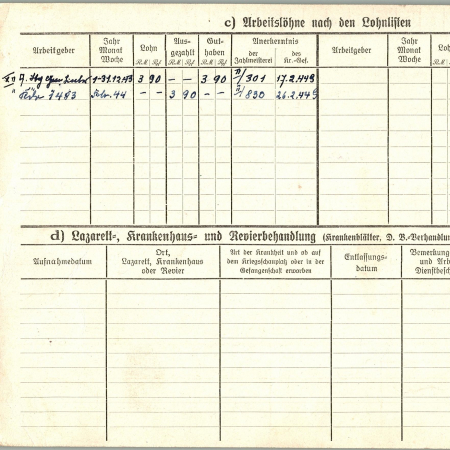 c) Arbeitslöhne nach den Lohnlisten
Arbeitgeber
Jahr Monat Woche
Lohn
R.M. Rpf
Ausgezahlt
R.M. Rpf
Guthaben
R.M. Rpf
Anerkenntnis
der Zahlmeisterei
des Kr.-Gef.
Arbeitgeber
Jahr Monat Woche
1-31.12.43 3 90 – – 3 90 /301 17.2.44
7483 Febr. 44 – – 3 90 – – /830 26.2.44
d) Lazarett-, Krankenhaus- und Revierbehandlung (Krankenblätter, D. B.-Verhandlu
Aufnahmedatum
Ort, Lazarett, Krankenhaus oder Revier
Art der Krankheit und ob auf dem Kriegsschauplatz oder in der Gefangenschaft erworben
Entlassungsdatum
Bemerkung
und Arb
Dienstbesch